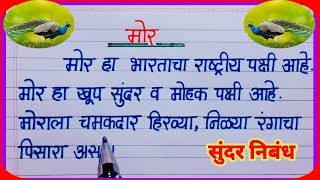 मोर
मोर हा भारताचा राष्ट्रीय पक्षी आहे.
मोर हा खूप सुंदर व मोहक पक्षी आहे.
मोराला चमकदार हिरव्या, निळ्या रंगाचा
पिसारा
सुंदर निबंध